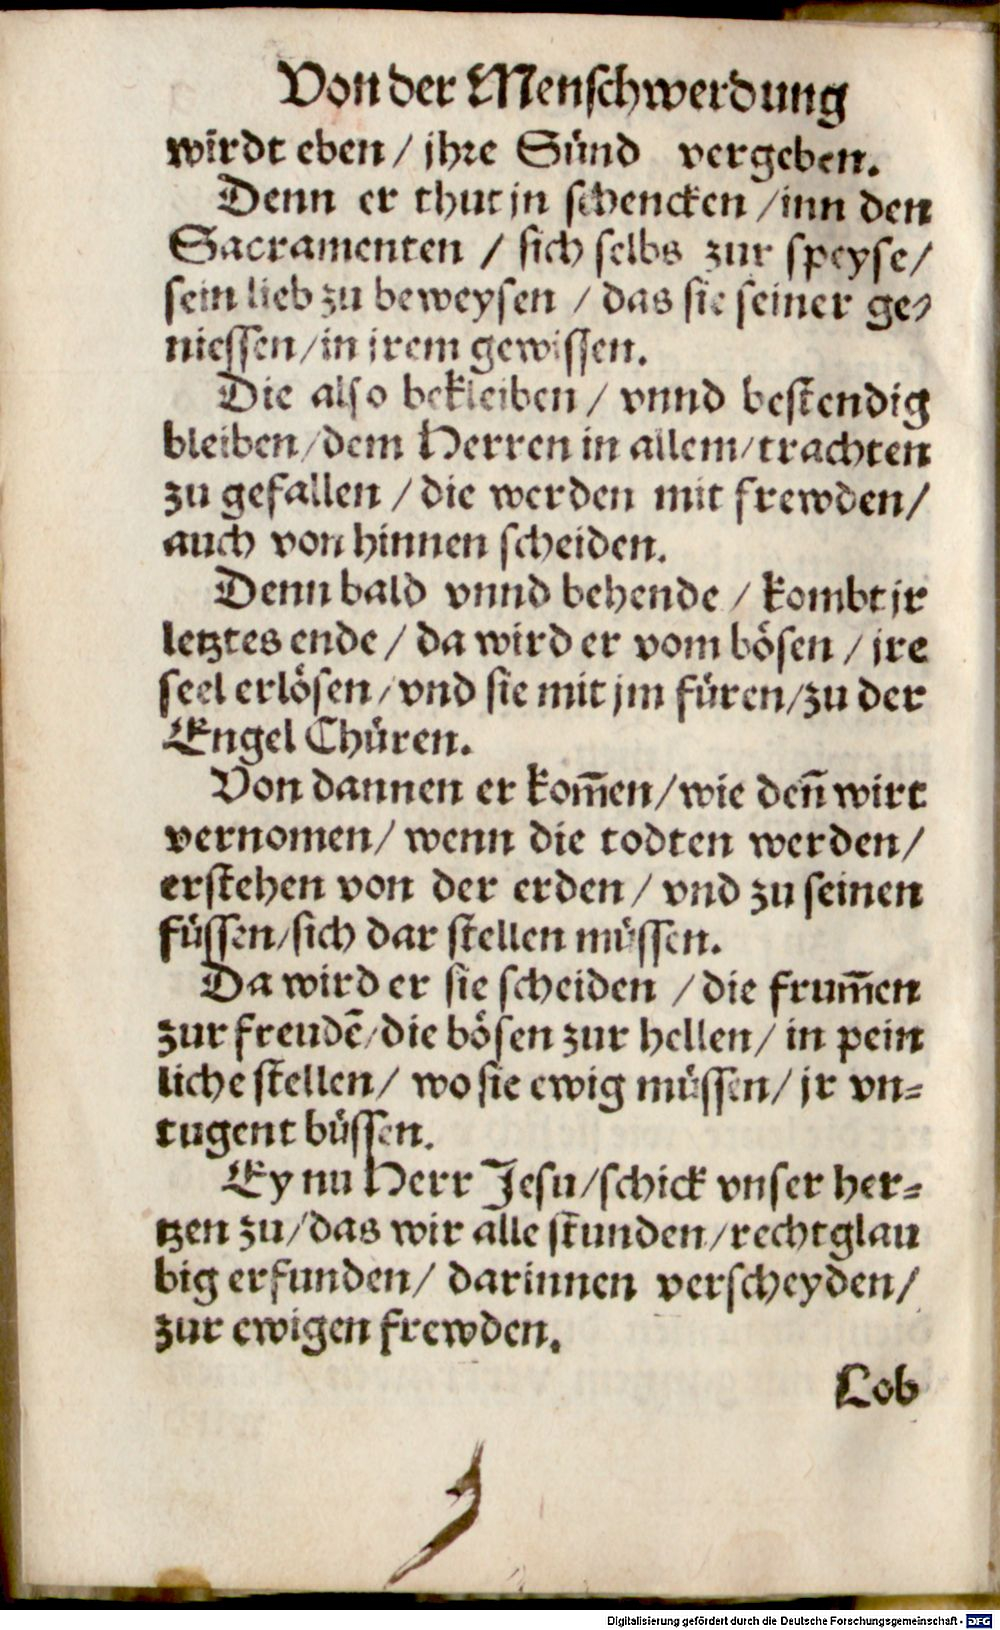 Von der Menschwerdung
wirdt eben / jhre Sünd vergeben.
Denn er thut jn schencken / inn den
Sacramenten / sich selbs zur speyse /
sein lieb zu beweysen / das sie seiner ge-
niessen / in jrem gewissen.
Die also bekleiben / vnnd bestendig
bleiben / dem Herren in allem / trachten
zu gefallen / die werden mit frewden /
auch von hinnen scheiden.
Denn bald vnnd behende / kombt jr
letztes ende / da wird er vom bösen / jre
seel erlösen / vnd sie mit jm füren / zu der
Engel Chüren.
Von dannen er kom̄en / wie den̄ wirt
vernomen / wenn die todten werden /
erstehen von der erden / vnd zu seinen
füssen / sich dar stellen müssen.
Da wird er sie scheiden / die frum̄en
zur freudē / die bösen zur hellen / in pein
liche stellen / wo sie ewig müssen / jr vn-
tugent büssen.
Ey nu Herr Jesu / schick vnser her-
tzen zu / das wir alle stunden / rechtglau
big erfunden / darinnen verscheyden /
zur ewigen frewden.
Lob
Digitalisierung gefördert durch die Deutsche Forschungsgemeinschaft - DFG